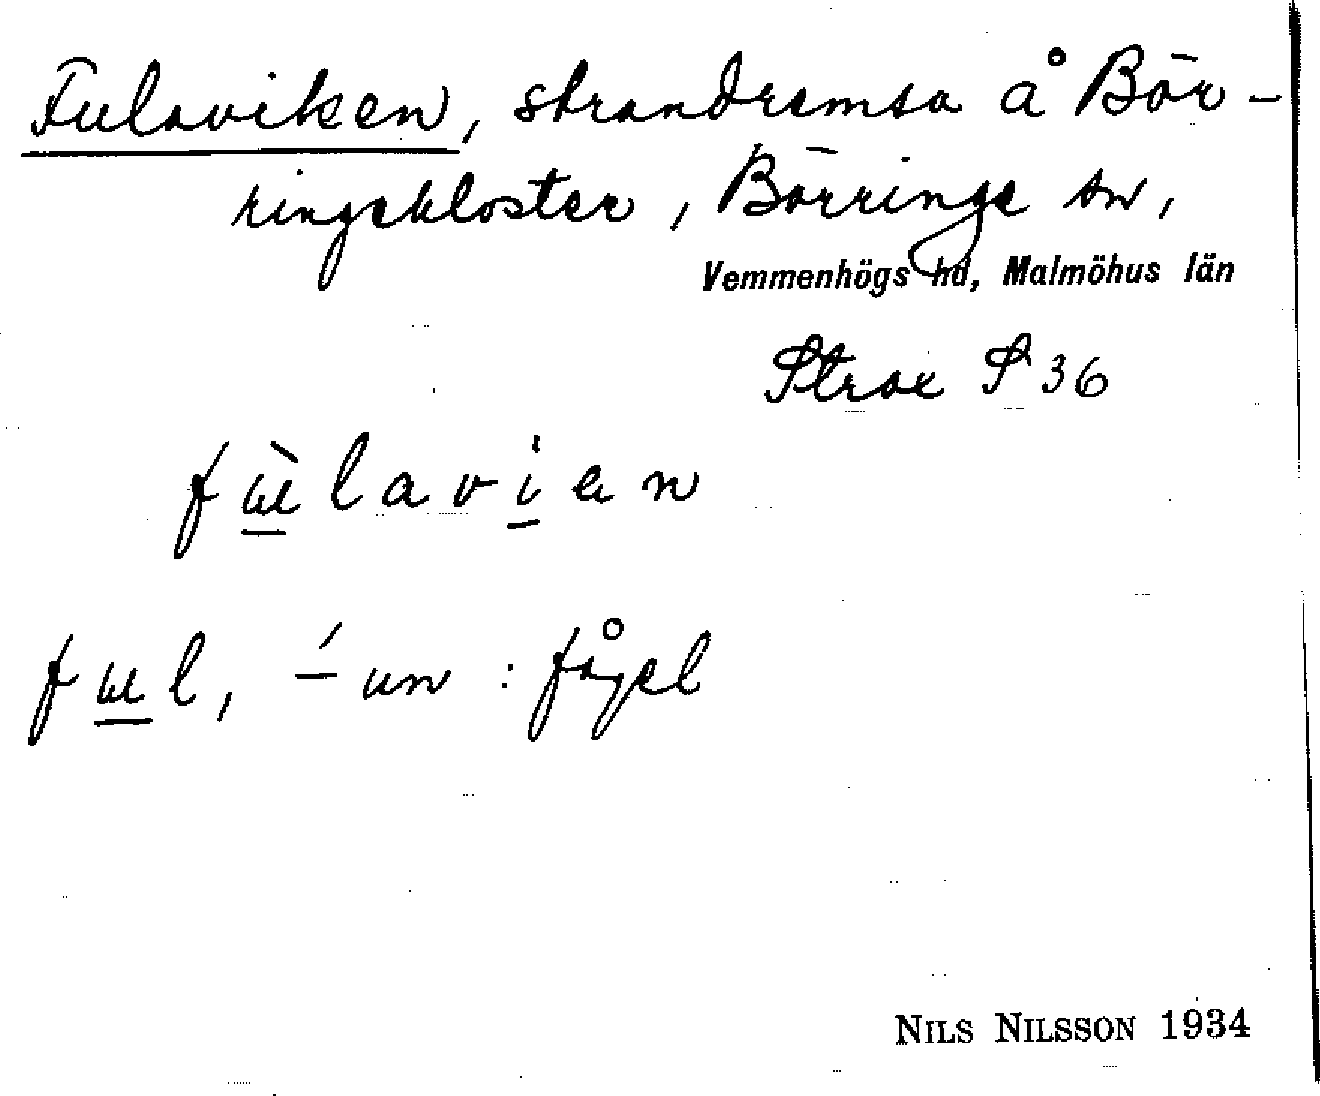 Fulaviken, strandremsa å Bör-
ringekloster, Börringe sn,
Vemmenhögs hd, Malmöhus län
Strax S 36
fùlavien
ful, -́un : fågel
NILS NILSSON 1934